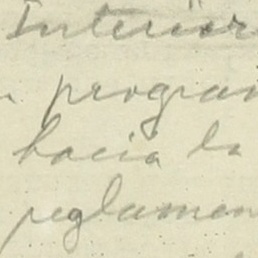 Interior
progra
hacia la
reglamen